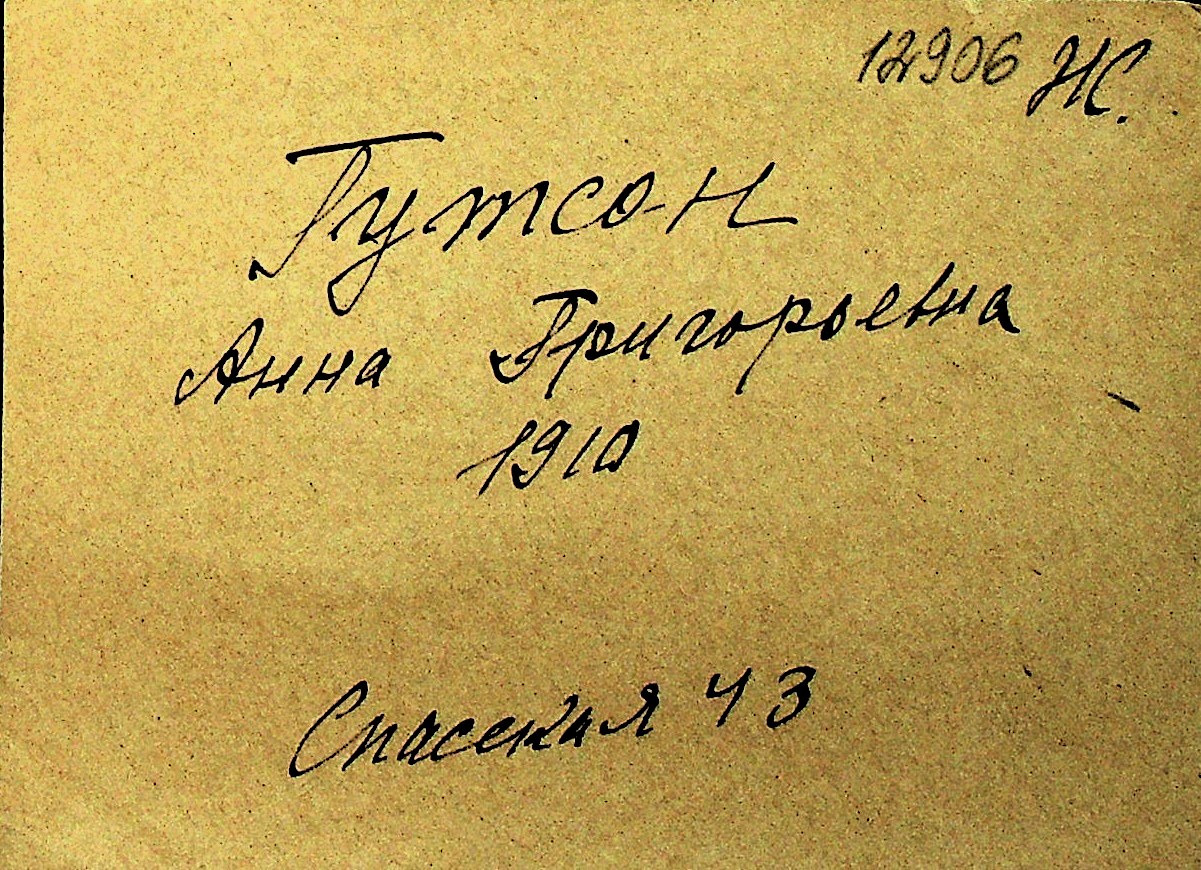 12906 Ж.
Гутсон
Анна Григорьевна
1910
Спасская 43